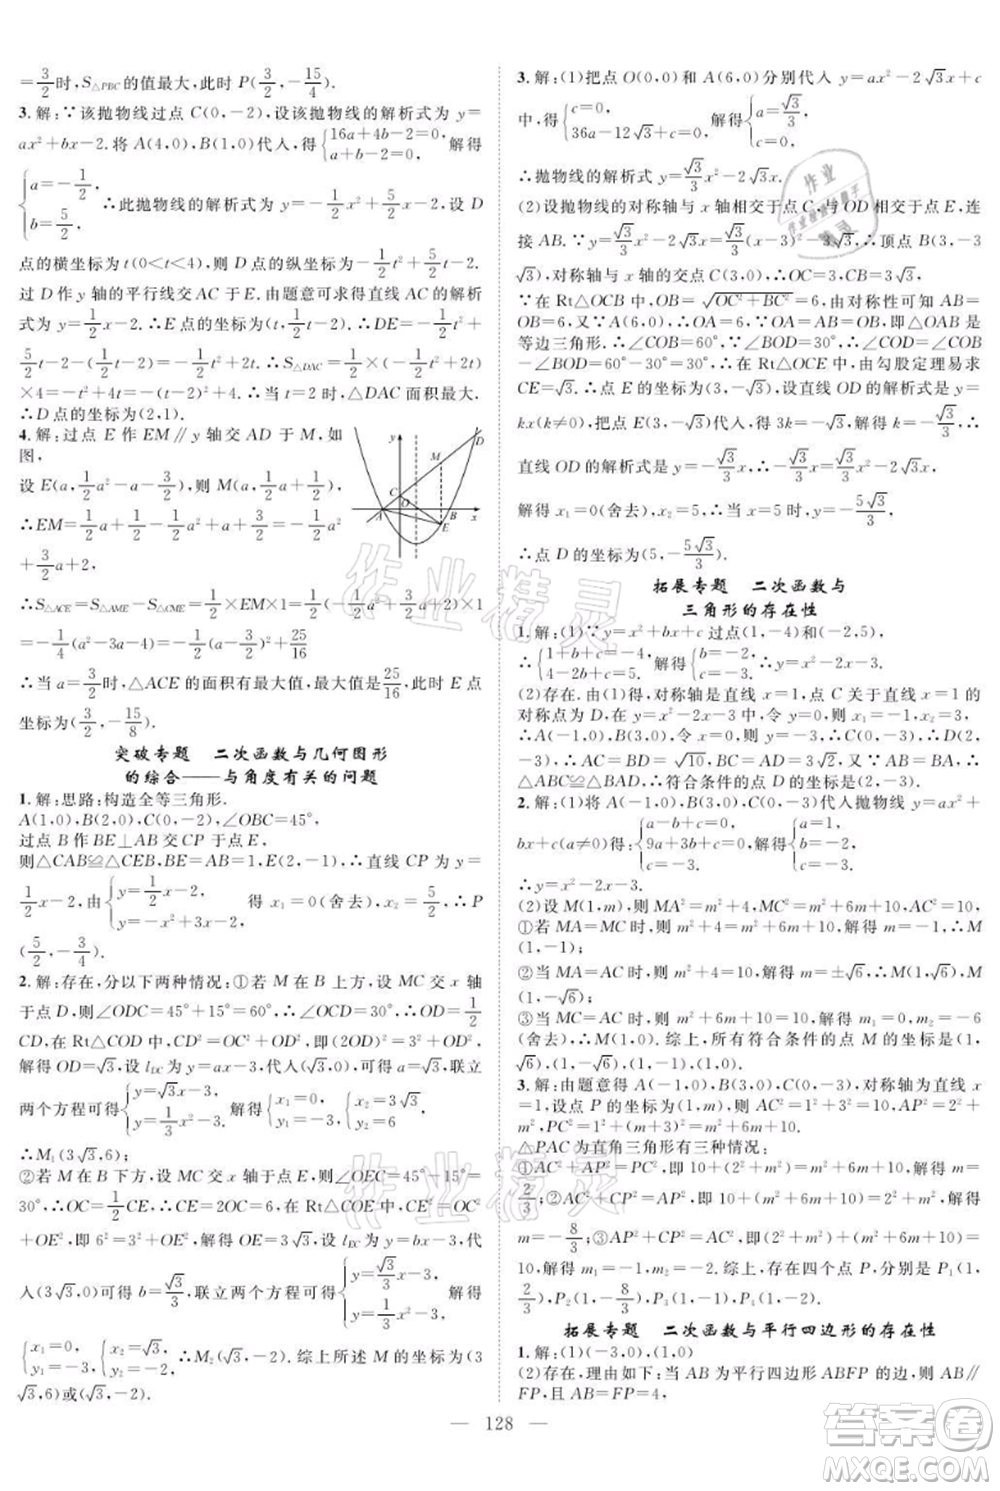 =3/2时,S△PBC的值最大,此时 P(3/2,-15/4).
3.解:∵该抛物线过点 C(0,-2),设该抛物线的解析式为 y=
ax²+bx-2.将 A(4,0),B(1,0)代入,得{16a+4b-2=0, a+b-2=0, 解得
{a=-1/2, b=5/2, ∴此抛物线的解析式为 y=-1/2x²+5/2x-2,设 D
点的横坐标为 t(0<t<4),则 D 点的纵坐标为-1/2t²+5/2t-2.
过 D 作 y 轴的平行线交 AC 于 E.由题意可求得直线 AC 的解析
式为 y=1/2x-2.∴E 点的坐标为(t,1/2t-2).∴DE=-1/2t²+
5/2t-2-(1/2t-2)=-1/2t²+2t.∴S△DAC=1/2×(-1/2t²+2t)
×4=-t²+4t=-(t-2)²+4.∴当 t=2 时,△DAC 面积最大.
∴D 点的坐标为(2,1).
4.解:过点 E 作 EM∥y 轴交 AD 于 M,如
图,
设 E(a,1/2a²-1/2a-2),则 M(a,1/2a+1/2),
∴EM=1/2a+1/2-1/2a²+1/2a+2=-1/2a²+
3/2a+2,
∴S△ACE=S△AME-S△CME=1/2×EM×1=1/2(-1/2a²+3/2a+2)×1
=-1/4(a²-3a-4)=-1/4(a-3/2)²+25/16
∴当 a=3/2时,△ACE 的面积有最大值,最大值是25/16,此时 E 点
坐标为(3/2,-15/8).
y D M C O A B E x
突破专题 二次函数与几何图形
的综合——与角度有关的问题
1.解:思路:构造全等三角形.
A(1,0),B(2,0),C(0,-2),∠OBC=45°,
过点 B 作 BE⊥AB 交 CP 于点 E,
则△CAB≌△CEB,BE=AB=1,E(2,-1),∴直线 CP 为 y=
1/2x-2,由{y=1/2x-2, y=-x²+3x-2, 得 x₁=0(舍去),x₂=5/2,∴P
(5/2,-3/4).
2.解:存在,分以下两种情况:①若 M 在 B 上方,设 MC 交 x 轴
于点 D,则∠ODC=45°+15°=60°.∴∠OCD=30°,∴OD=1/2
CD,在 Rt△COD 中,CD²=OC²+OD²,即(2OD)²=OD²+3².
解得 OD=√3,设 lDC为 y=ax-3,代入(√3,0)可得 a=√3,联立
两个方程可得{y=√3x-3, y=1/3x²-3, 解得{x₁=0, y₁=-3, {x₂=3√3, y₂=6.
∴M₁(3√3,6);
②若 M 在 B 下方,设 MC 交 x 轴于点 E,则∠OEC=45°-15°=
30°,∴OC=1/2CE,∴∠OCE=60°.在 Rt△OCE 中,CE²=OC²
+OE²,即 6²=3²+OE².解得 OE=3√3,设 lEC为 y=bx-3,代
入(3√3,0)可得 b=√3/3,联立两个方程可得{y=√3/3x-3, y=1/3x²-3, 解得
{x₁=0, y₁=-3, {x₂=√3, y₂=-2. ∴M₂(√3,-2).综上所述 M 的坐标为(3
√3,6)或(√3,-2).
3.解:(1)把点 O(0,0)和 A(6,0)分别代入 y=ax²-2√3x+c
中,得{c=0, 36a-12√3+c=0, 解得{a=√3/3, c=0.
∴抛物线的解析式为 y=√3/3x²-2√3x.
(2)设抛物线的对称轴与 x 轴交于点 C,与 OD 相交于点 E,连
接 AB.∵y=√3/3x²-2√3x=√3/3(x-3)²-3√3.∴顶点 B(3,-3
√3),对称轴与 x 轴的交点 C(3,0).∴OC=3,CB=3√3.
∵在 Rt△OCB 中,OB=√OC²+BC²=6,由对称性可得 AB=
OB=6,又∵A(6,0).∴OA=6,∴OA=OB=AB,即△OAB 是
等边三角形.∴∠COB=60°.又∵∠BOD=30°,∴∠COD=∠COB
-∠BOD=60°-30°=30°.∴在 Rt△OCE 中,由勾股定理易求
CE=√3.∴点 E 的坐标为(3,-√3),设直线 OD 的解析式是 y=
kx(k≠0),把点 E(3,-√3)代入,得 3k=-√3,解得 k=-√3/3.∴
直线 OD 的解析式是 y=-√3/3x.∴-√3/3x=√3/3x²-2√3x,
解得 x₁=0(舍去),x₂=5.∴当 x=5时,y=-5√3/3,
∴点 D 的坐标为(5,-5√3/3).
拓展专题 二次函数与
三角形的存在性
1.解:(1)∵y=x²+bx+c 过点(1,-4)和(-2,5),
∴{1+b+c=-4, 4-2b+c=5. 解得{b=-2, c=-3. ∴y=x²-2x-3;
(2)存在.由(1)得,对称轴是直线 x=1,点 C 关于直线 x=1 的
对称点为 D,在抛物线 y=x²-2x-3中,令 y=0,x₁=-1,x₂=3,
∴A(-1,0),B(3,0),令 x=0,y=-3,∴C(0,-3),∴D(2,
-3),∴AC=BD=√10,AD=BC=3√2,AB=BA=4.
∴△CAB≌△DBA,∴符合条件的点 D(2,-3).
2.解:(1)将 A(-1,0),B(3,0),C(0,-3)代入抛物线 y=ax²+
bx+c(a≠0)得:{a-b+c=0, 9a+3b+c=0, c=-3. 解得:{a=1, b=-2, c=-3.
∴y=x²-2x-3.
(2)设 M(1,m),则 MA²=m²+4,MC²=m²+6m+10,AC²=10,
①若 MA=MC 时,m²+4=m²+6m+10,解得:m=-1,∴M
(1,-1);
②当 MA=AC时,则 m²+4=10,得:m=±√6.∴M(1,√6),M
(1,-√6);
③当 MC=AC时,则 m²+6m+10=10,得:m₁=0,m₂=-6(舍
去);∴M(1,0).综上,所有符合条件的点 M 的坐标是(1,
√6),(1,-√6),(1,-1),(1,0).
3.解:由题意得 A(-1,0),B(3,0),C(0,-3),对称轴为直线 x
=1,设点 P 的坐标为(1,m),则 AC²=1²+3²=10,AP²=2²+
m²=4+m²,PC²=1²+(m+3)²=m²+6m+10,
△PAC为直角三角形有三种情况:
①AC²+AP²=PC²,即 10+4+m²=m²+6m+10,解得 m=
2/3;②AC²+CP²=AP²,即 10+m²+6m+10=4+m²,解得
m=-8/3;③AP²+CP²=AC²,即 4+m²+m²+6m+10=10,
解得 m₁=-2,m₂=-1.综上,存在四个点 P,分别是 P₁(1,
2/3),P₂(1,-8/3),P₃(1,-1),P₄(1,-2).
拓展专题 二次函数与平行四边形的存在性
1.解:(1)(-3,0),(1,0)
(2)存在,理由如下:当 AB 为平行四边形 ABFP 的边,则 AB∥
FP,且 AB=FP=4,
128
作业精灵
作业精灵
答案圈
MXQE.COM